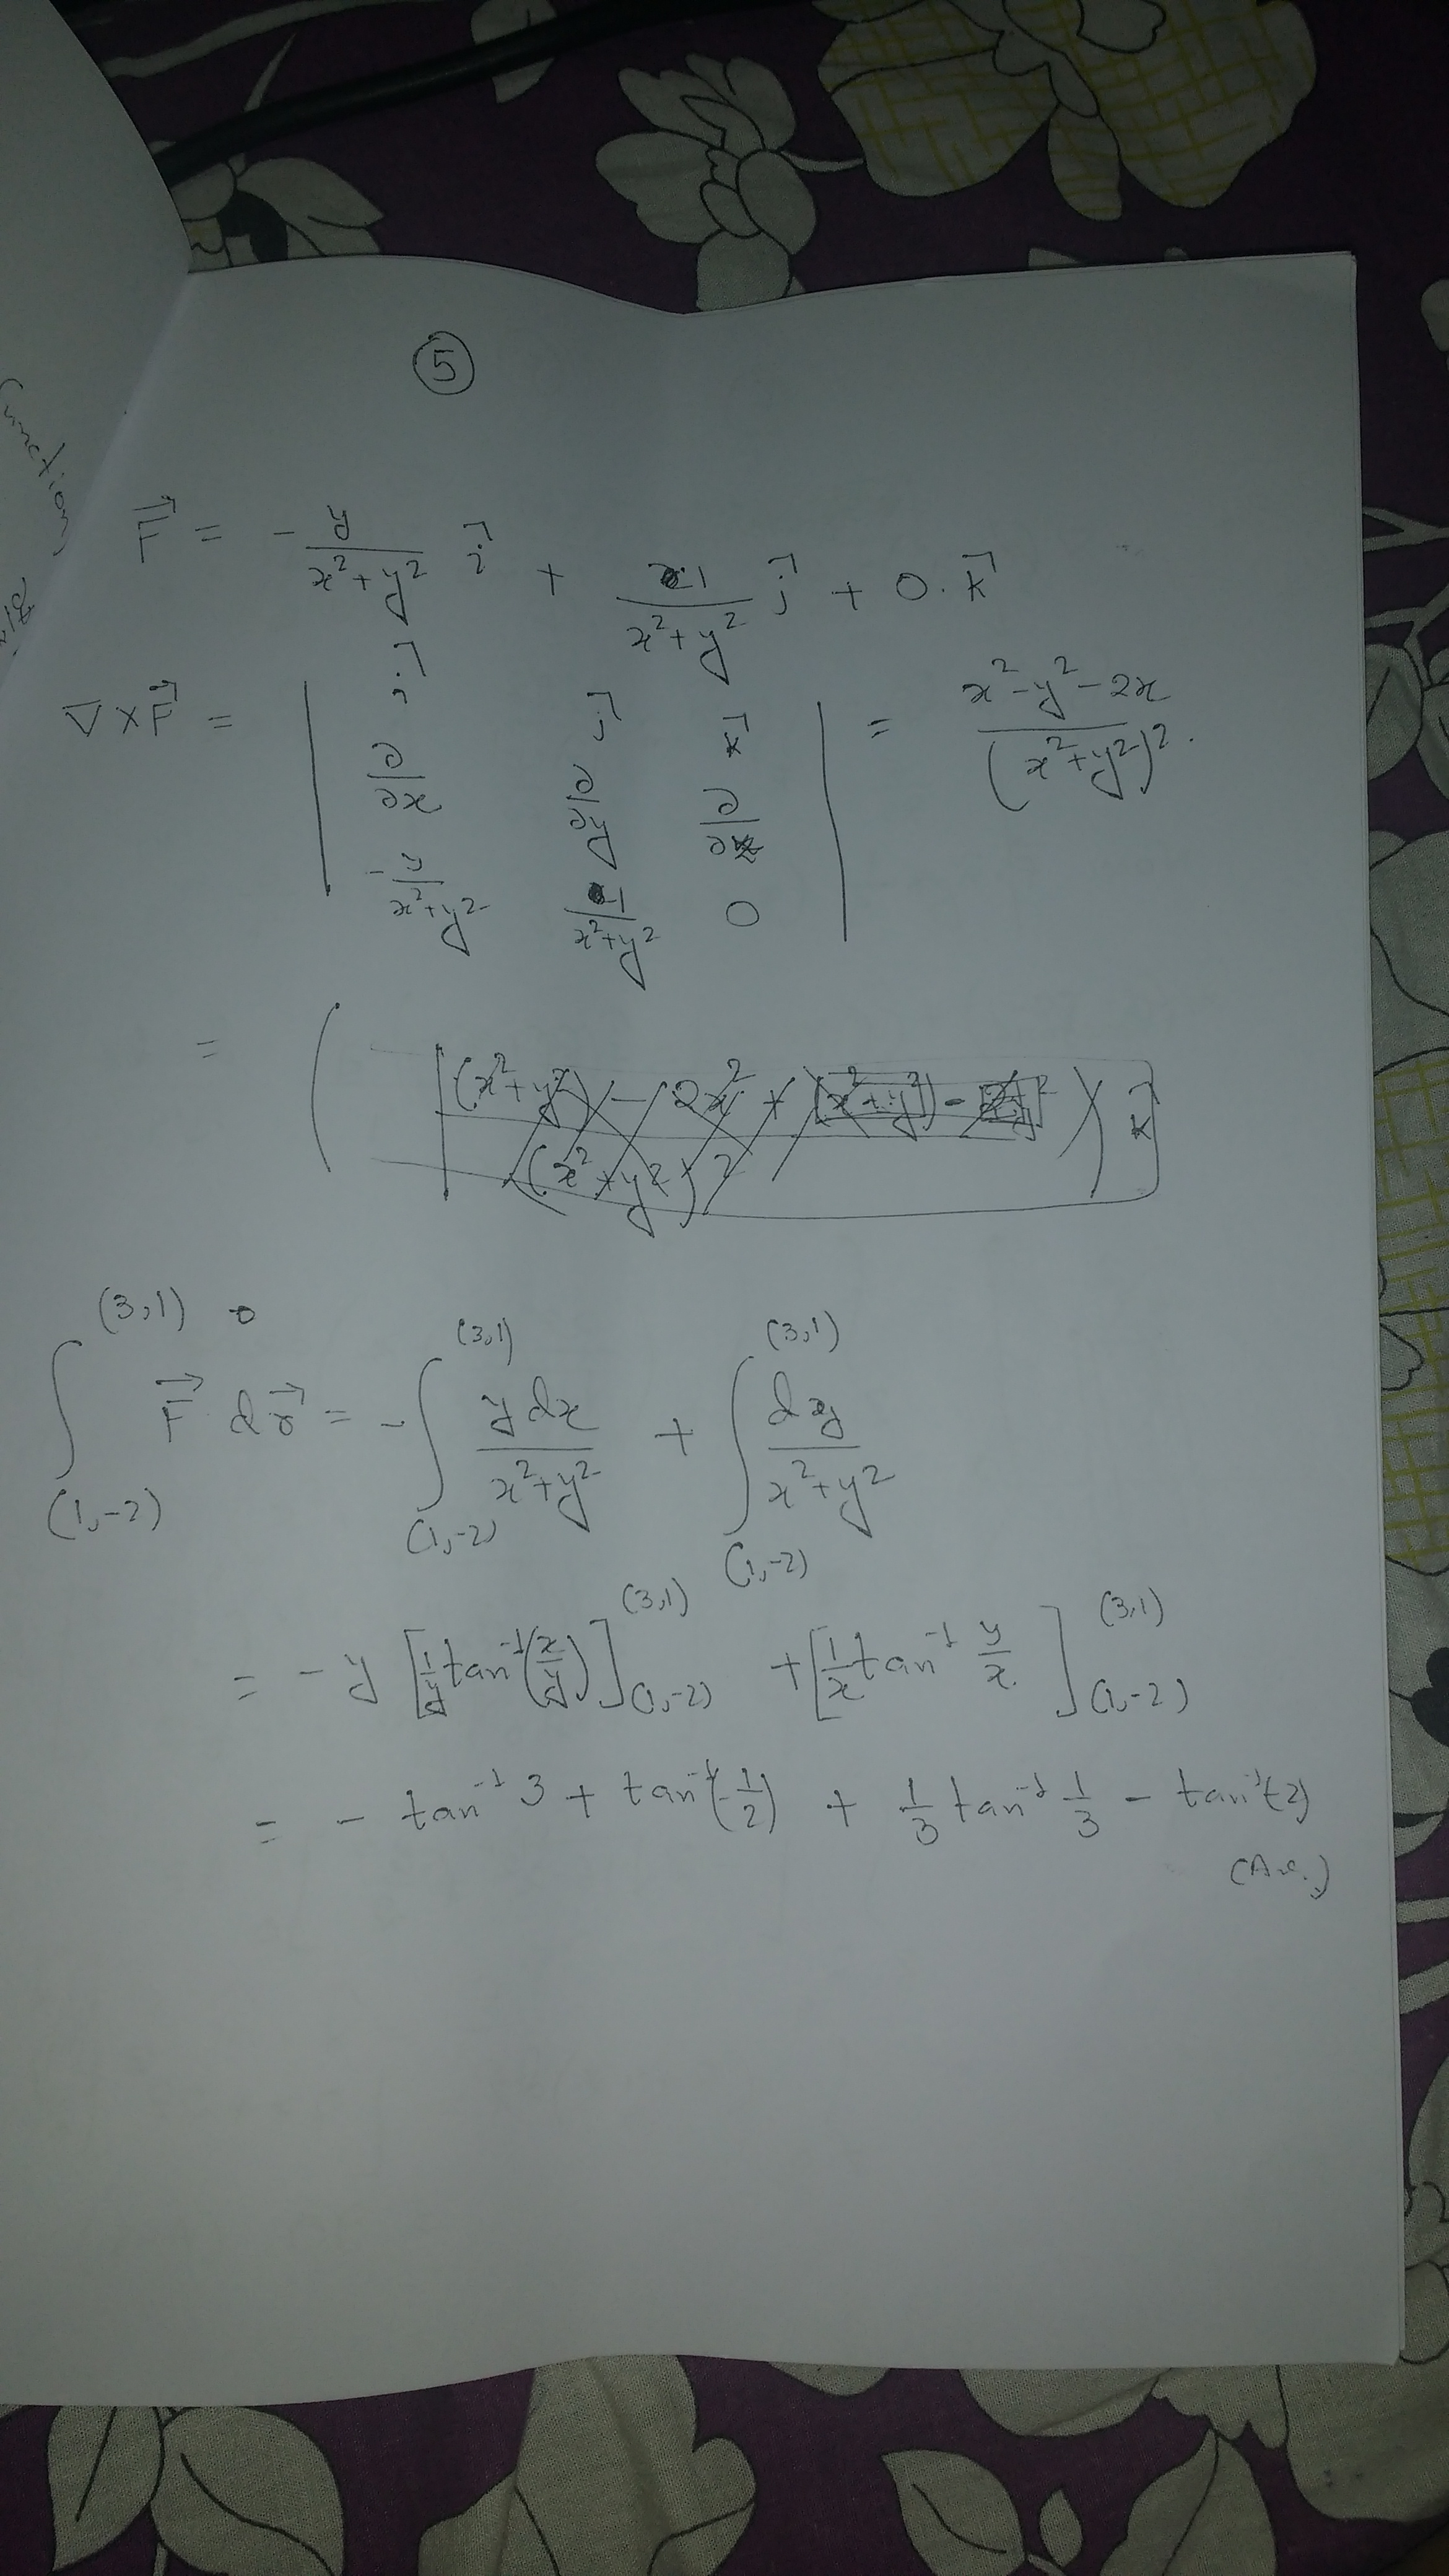 5
function
F⃗ = - y/(x²+y²) i⃗ + 1/(x²+y²) j⃗ + 0. k⃗
∇×F⃗ = | i⃗ j⃗ k⃗ | = (x²-y²-2x)/(x²+y²)².
∂/∂x ∂/∂y ∂/∂z
-y/(x²+y²) 1/(x²+y²) 0
= ( (x²+y²) - 2x² + (x²+y²) - 2y² / (x²+y²)² ) k⃗
∫_(1,-2)^(3,1) F⃗ dr⃗ = - ∫_(1,-2)^(3,1) y dx/(x²+y²) + ∫_(1,-2)^(3,1) dy/(x²+y²)
= - y [1/y tan⁻¹(x/y)]_(1,-2)^(3,1) + [1/x tan⁻¹ y/x]_(1,-2)^(3,1)
= - tan⁻¹ 3 + tan⁻¹(-1/2) + 1/3 tan⁻¹ 1/3 - tan⁻¹(-2)